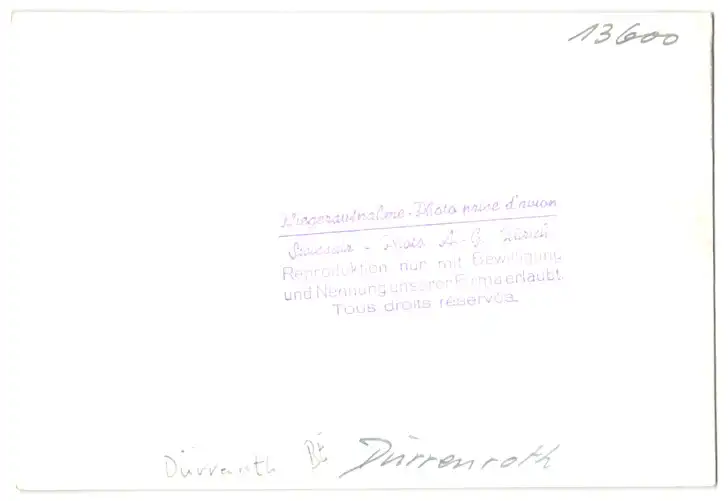 13600
Fliegeraufnahme - Photo prise d'avion
Swissair - Photo A.-G. Zürich
Reproduktion nur mit Bewilligung
und Nennung unserer Firma erlaubt
Tous droits réservés.
Dürrenroth Dürrenroth